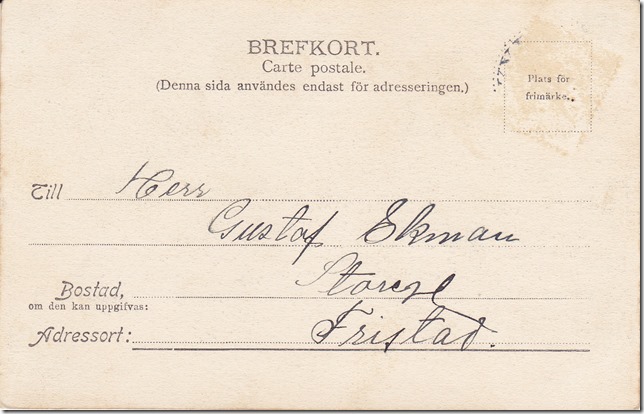 BREFKORT.
Carte postale.
(Denna sida användes endast för adresseringen.)
Plats för
frimärke.
Till Herr
Gustaf Ekman
Bostad,
om den kan uppgifvas:
Adressort: Fristad.